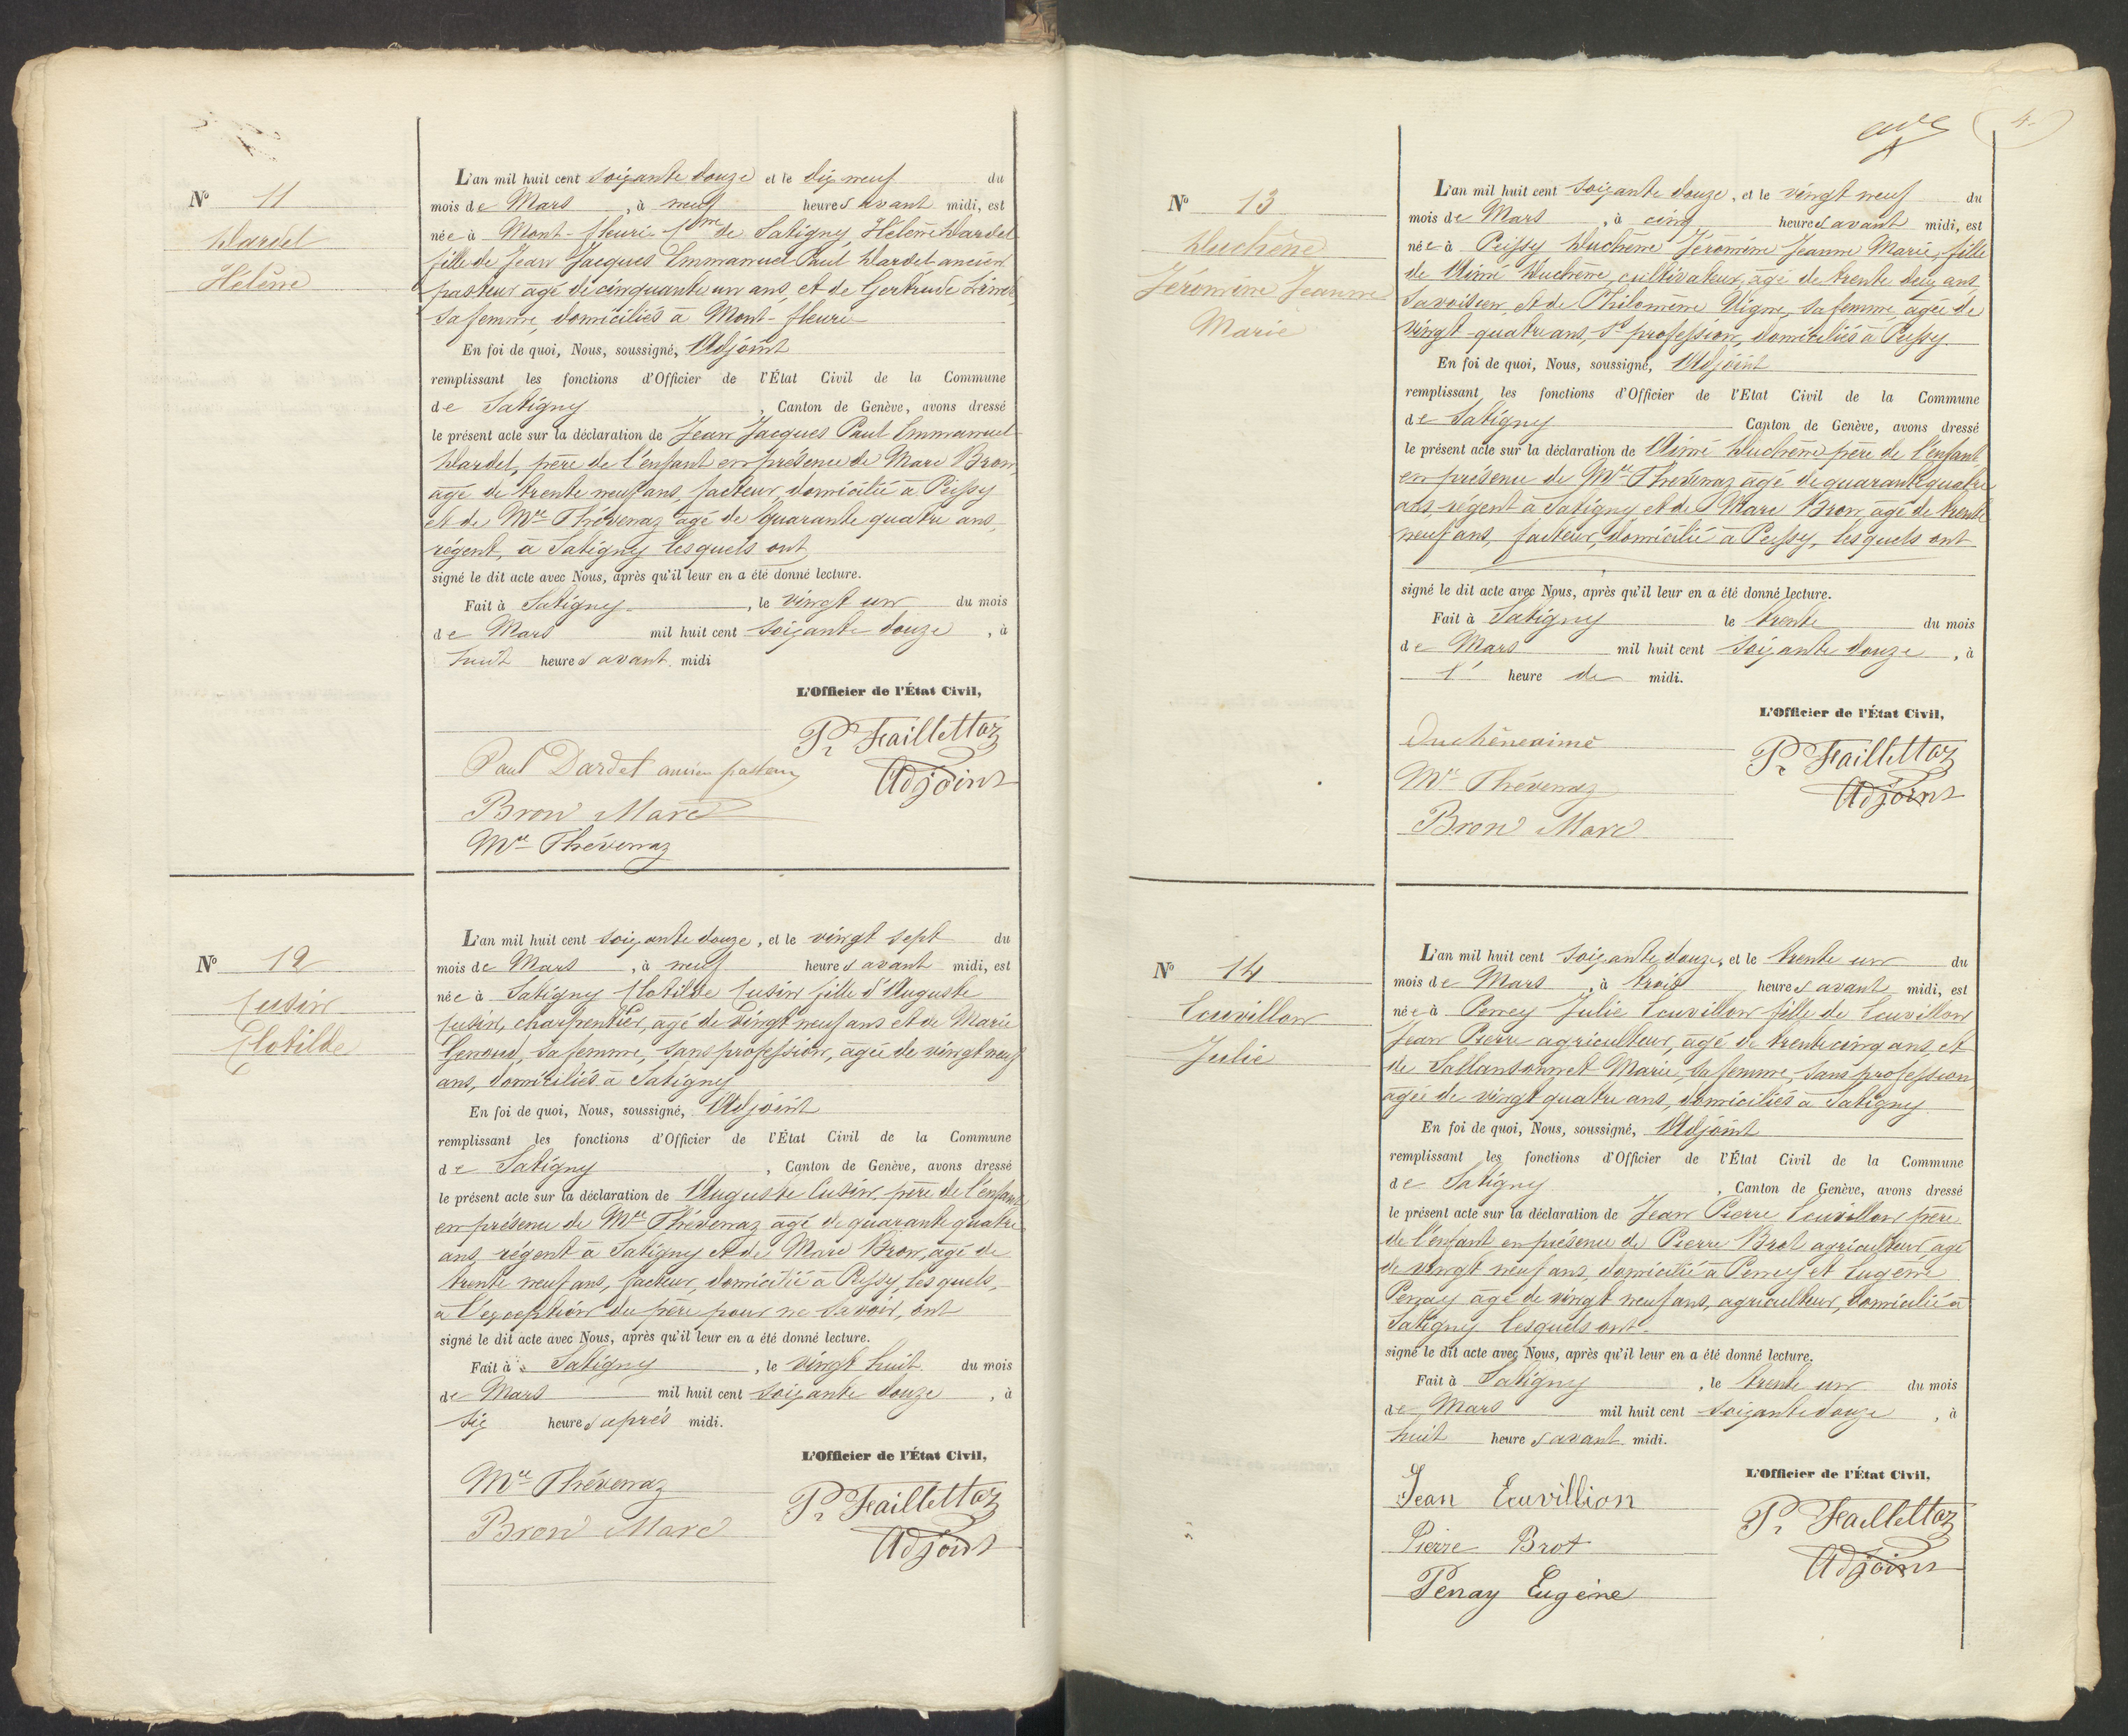 N° 11
Dardel
Hélène
L'an mil huit cent soixante douze et le dix neuf du
mois de Mars, à neuf heures avant midi, est
née à Mont-fleuri Cne de Satigny Hélène Dardel
fille de Jean Jacques Emmanuel Paul Dardel ancien
pasteur âgé de cinquante un ans, et de Gertrude
sa femme, domiciliés à Mont-fleuri
En foi de quoi, Nous, soussigné, Adjoint
remplissant les fonctions d'Officier de l'État Civil de la Commune
de Satigny, Canton de Genève, avons dressé
le présent acte sur la déclaration de Jean Jacques Paul Emmanuel
Dardel, père de l'enfant en présence de Marc Bron,
âgé de trente neuf ans, facteur, domicilié à Peissy
et de Mce Thévenaz âgé de quarante quatre ans,
régent, à Satigny lesquels ont
signé le dit acte avec Nous, après qu'il leur en a été donné lecture.
Fait à Satigny, le vingt un du mois
de Mars mil huit cent soixante douze, à
huit heures avant midi
L'Officier de l'État Civil,
Paul Dardel ancien pasteur
Bron Marc
Mce Thévenaz
Pr Failletaz
Adjoint
N° 12
Cusin
Clotilde
L'an mil huit cent soixante douze, et le vingt sept du
mois de Mars, à neuf heures avant midi, est
née à Satigny Clotilde Cusin fille d'Auguste
Cusin, charpentier, âgé de vingt neuf ans et de Marie
Genoud, sa femme, sans profession, âgée de vingt neuf
ans, domiciliés à Satigny
En foi de quoi, Nous, soussigné, Adjoint
remplissant les fonctions d'Officier de l'État Civil de la Commune
de Satigny, Canton de Genève, avons dressé
le présent acte sur la déclaration de Auguste Cusin, père de l'enfant
en présence de Mce Thévenaz âgé de quarante quatre
ans, régent à Satigny et de Marc Bron, âgé de
trente neuf ans, facteur, domicilié à Peissy, lesquels,
à l'exception du père pour ne savoir, ont
signé le dit acte avec Nous, après qu'il leur en a été donné lecture.
Fait à Satigny, le vingt huit du mois
de Mars mil huit cent soixante douze, à
six heures après midi.
L'Officier de l'État Civil,
Mce Thévenaz
Bron Marc
Pr Failletaz
Adjoint
4
N° 13
Duchêne
Jéromine Jeanne
Marie
L'an mil huit cent soixante douze, et le vingt neuf du
mois de Mars, à cinq heures avant midi, est
née à Peissy Duchêne Jéromine Jeanne Marie, fille
de Aimé Duchêne, cultivateur, âgé de trente deux ans,
Savoisien, et de Philomène Vigne, sa femme, âgée de
vingt-quatre ans, Ss profession, domiciliés à Peissy
En foi de quoi, Nous, soussigné, Adjoint
remplissant les fonctions d'Officier de l'État Civil de la Commune
de Satigny Canton de Genève, avons dressé
le présent acte sur la déclaration de Aimé Duchêne père de l'enfant
en présence de Mce Thévenaz âgé de quarante quatre
ans régent à Satigny et de Marc Bron, âgé de trente
neuf ans, facteur, domicilié à Peissy, lesquels ont
signé le dit acte avec Nous, après qu'il leur en a été donné lecture.
Fait à Satigny le trente du mois
de Mars mil huit cent soixante douze, à
1 heure de midi.
L'Officier de l'État Civil,
Duchêne aimé
Mce Thévenaz
Bron Marc
Pr Failletaz
Adjoint
N° 14
Ecuvillon
Julie
L'an mil huit cent soixante douze, et le trente un du
mois de Mars, à trois heures avant midi, est
née à Penney Julie Ecuvillon fille de Ecuvillon
Jean Pierre agriculteur, âgé de trente cinq ans, et
de Sallansonnet Marie, sa femme, sans profession,
âgée de vingt quatre ans, domiciliés à Satigny
En foi de quoi, Nous, soussigné, Adjoint
remplissant les fonctions d'Officier de l'État Civil de la Commune
de Satigny, Canton de Genève, avons dressé
le présent acte sur la déclaration de Jean Pierre Ecuvillon père
de l'enfant en présence de Pierre Brot agriculteur, âgé
de vingt neuf ans, domicilié à Penney et Eugène
Penay âgé de vingt neuf ans, agriculteur, domicilié à
Satigny lesquels ont
signé le dit acte avec Nous, après qu'il leur en a été donné lecture.
Fait à Satigny, le trente un du mois
de Mars mil huit cent soixante douze, à
huit heures avant midi.
L'Officier de l'État Civil,
Jean Ecuvillion
Pierre Brot
Penay Eugène
Pr Failletaz
Adjoint